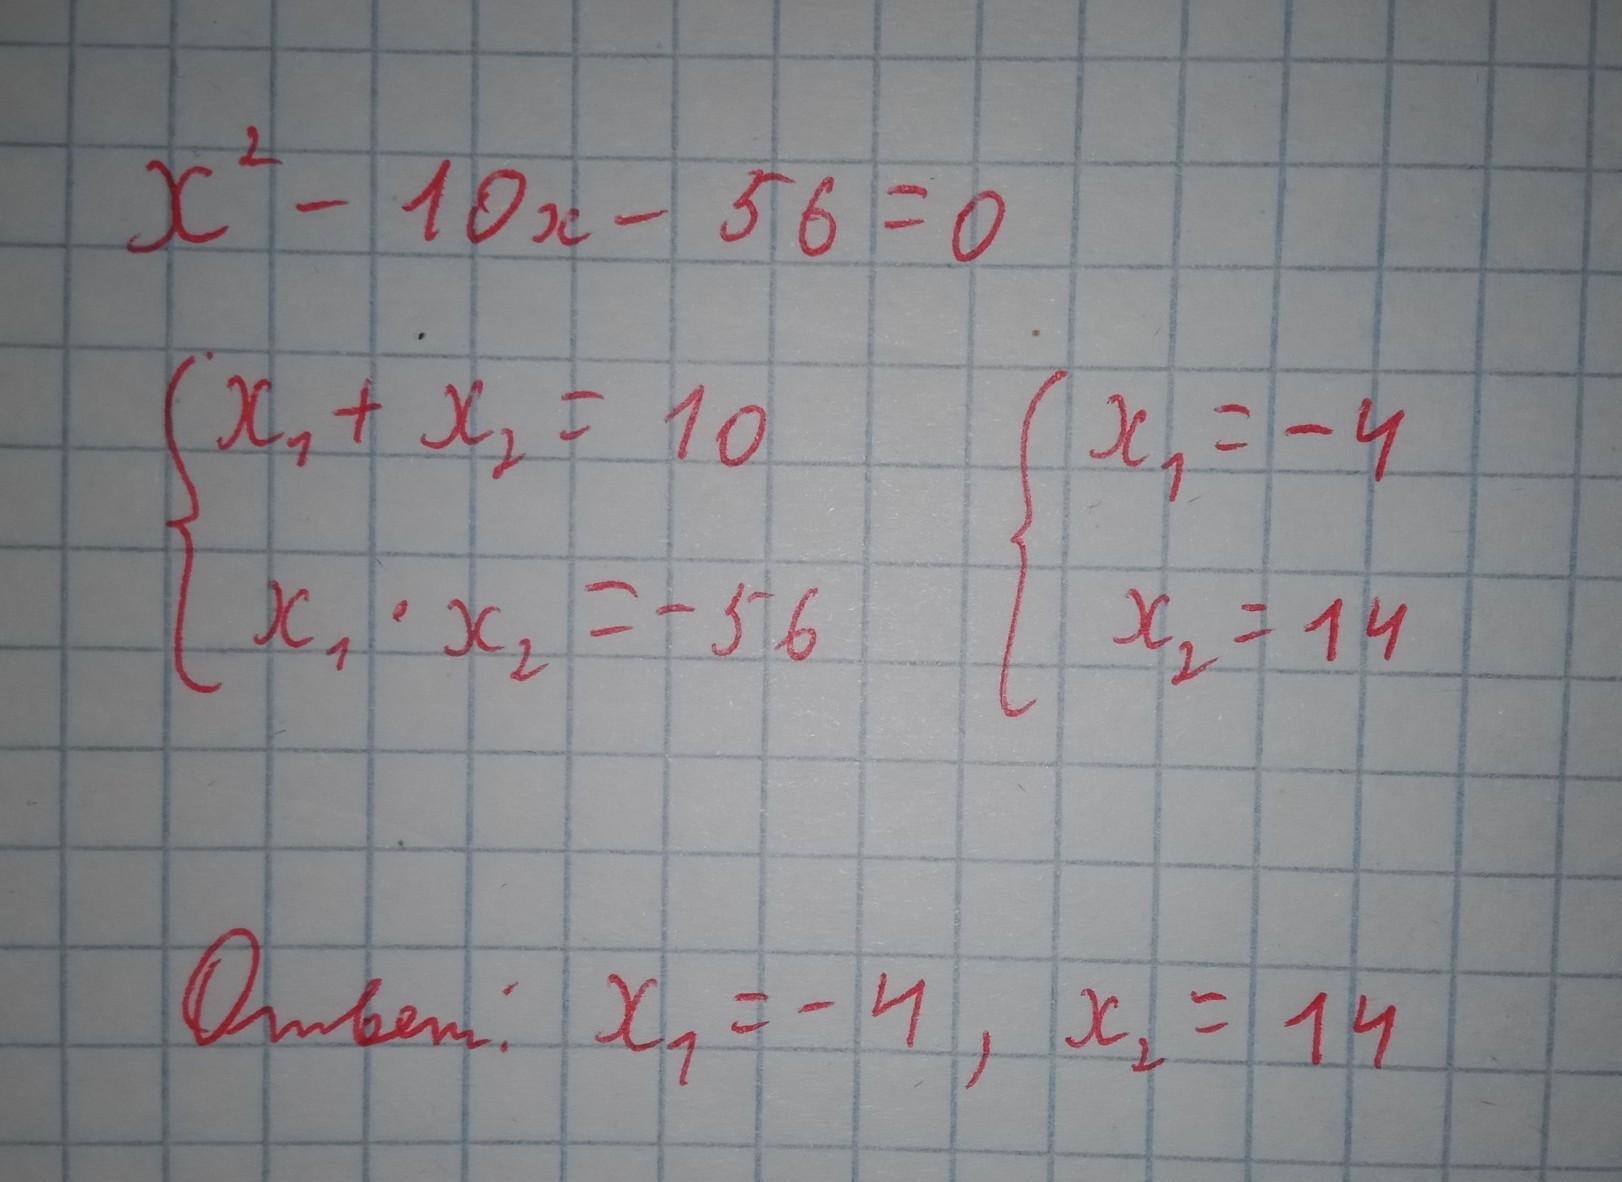 x² - 10x - 56 = 0
{ x₁ + x₂ = 10 { x₁ = -4
x₁ · x₂ = -56 x₂ = 14
Ответ: x₁ = -4, x₂ = 14